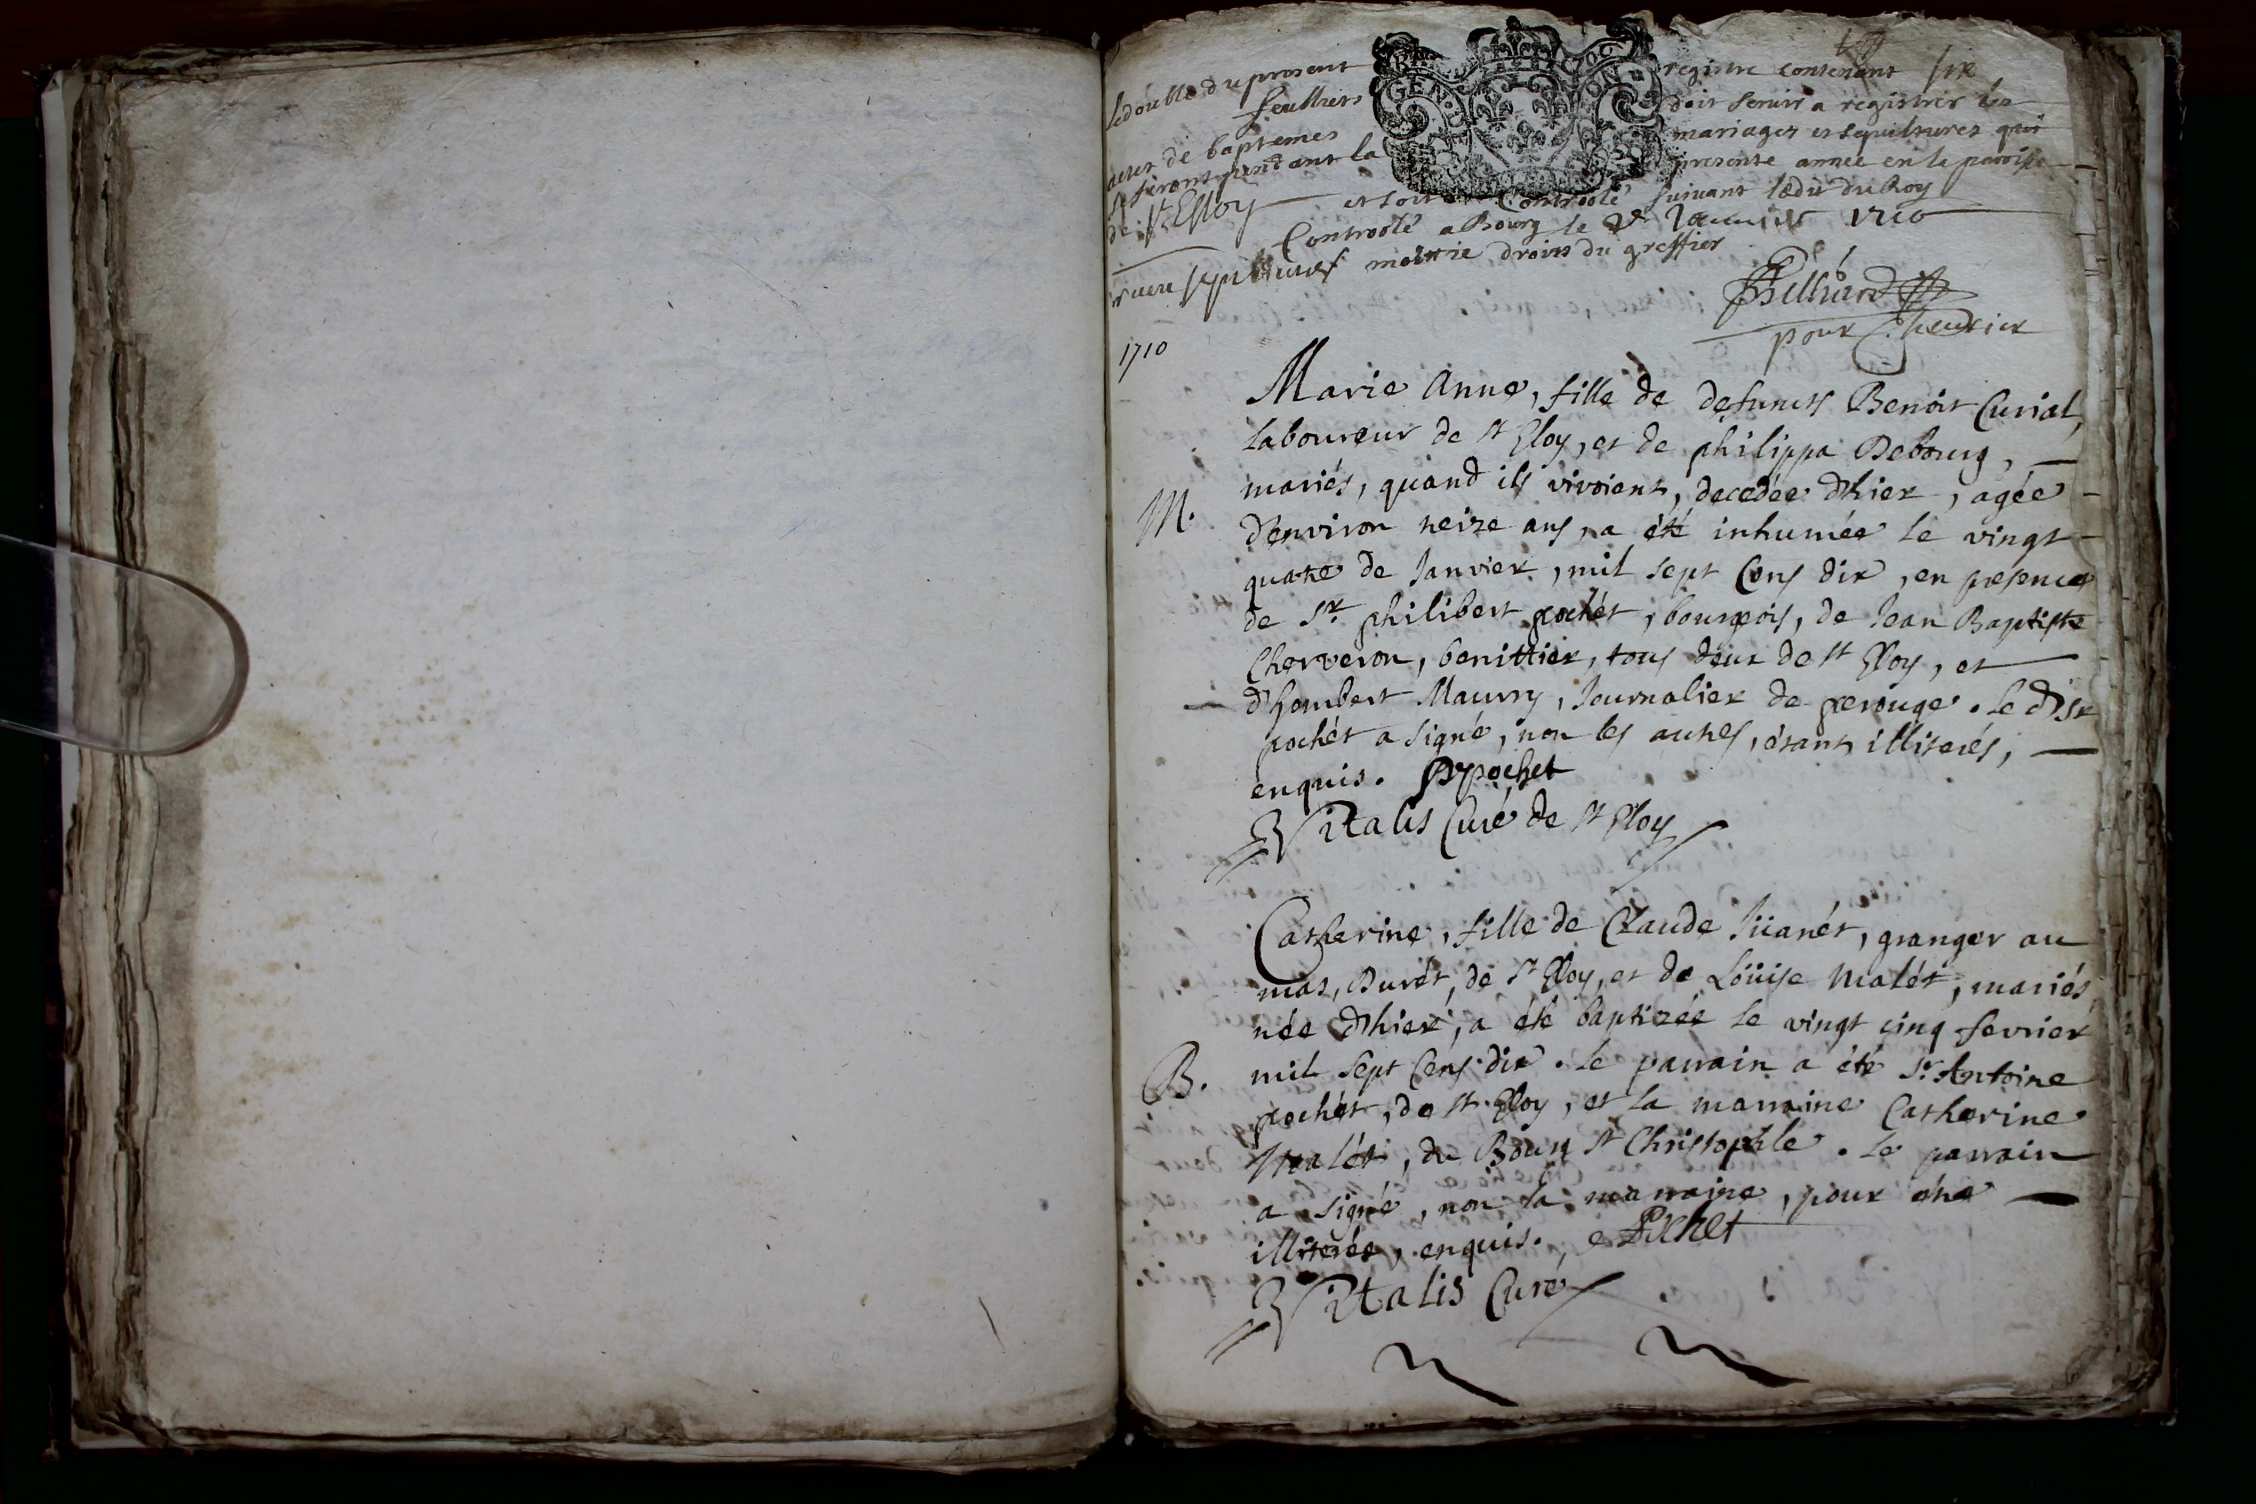 le double du present registre contenant six
feuillets doit servir a registrer les
actes de baptemes mariages et sepultures qui
se feront pendant la presente année en la paroisse
de St Elloy et soit Controolé suivant lédit du Roy
Controolé a Bourg le Janvier 1710
moittie droits du greffier
Bilhiard
pour Chevrier
GEN.
1710
Marie Anne, fille de defunts Benoit Curial,
laboureur de St Eloy, et de philippa Debourg,
mariés, quand ils vivoient, decedée d'hier, agée
M.
d'environ treize ans, a été inhumée le vingt
quatre de Janvier, mil sept Cens dix, en presence
de Sr. philibert pochét, bourgeois, de Jean Baptiste
Cherveron, benittier, tous deux de St Eloy, et
d'humbert Maurry, Journalier de perouge. le dt Sr
pochét a signé, non les autres, étant, illiterés,
enquis. pochet
Vitalis Curé de St Eloy
Catherine, fille de Claude Jüanét, granger au
mas, Burét, de St Eloy, et de Loüise Malét, mariés,
née d'hier, a été baptizée le vingt cinq fevrier
B.
mil sept Cens dix. le parrain a été Sr. Antoine
pochét, de St. Eloy, et la marraine Catherine
Malét, du Bourg St Christophle. le parrain
a signé, non la marraine, pour étre
illiterée, enquis. Pochet
Vitalis Curé